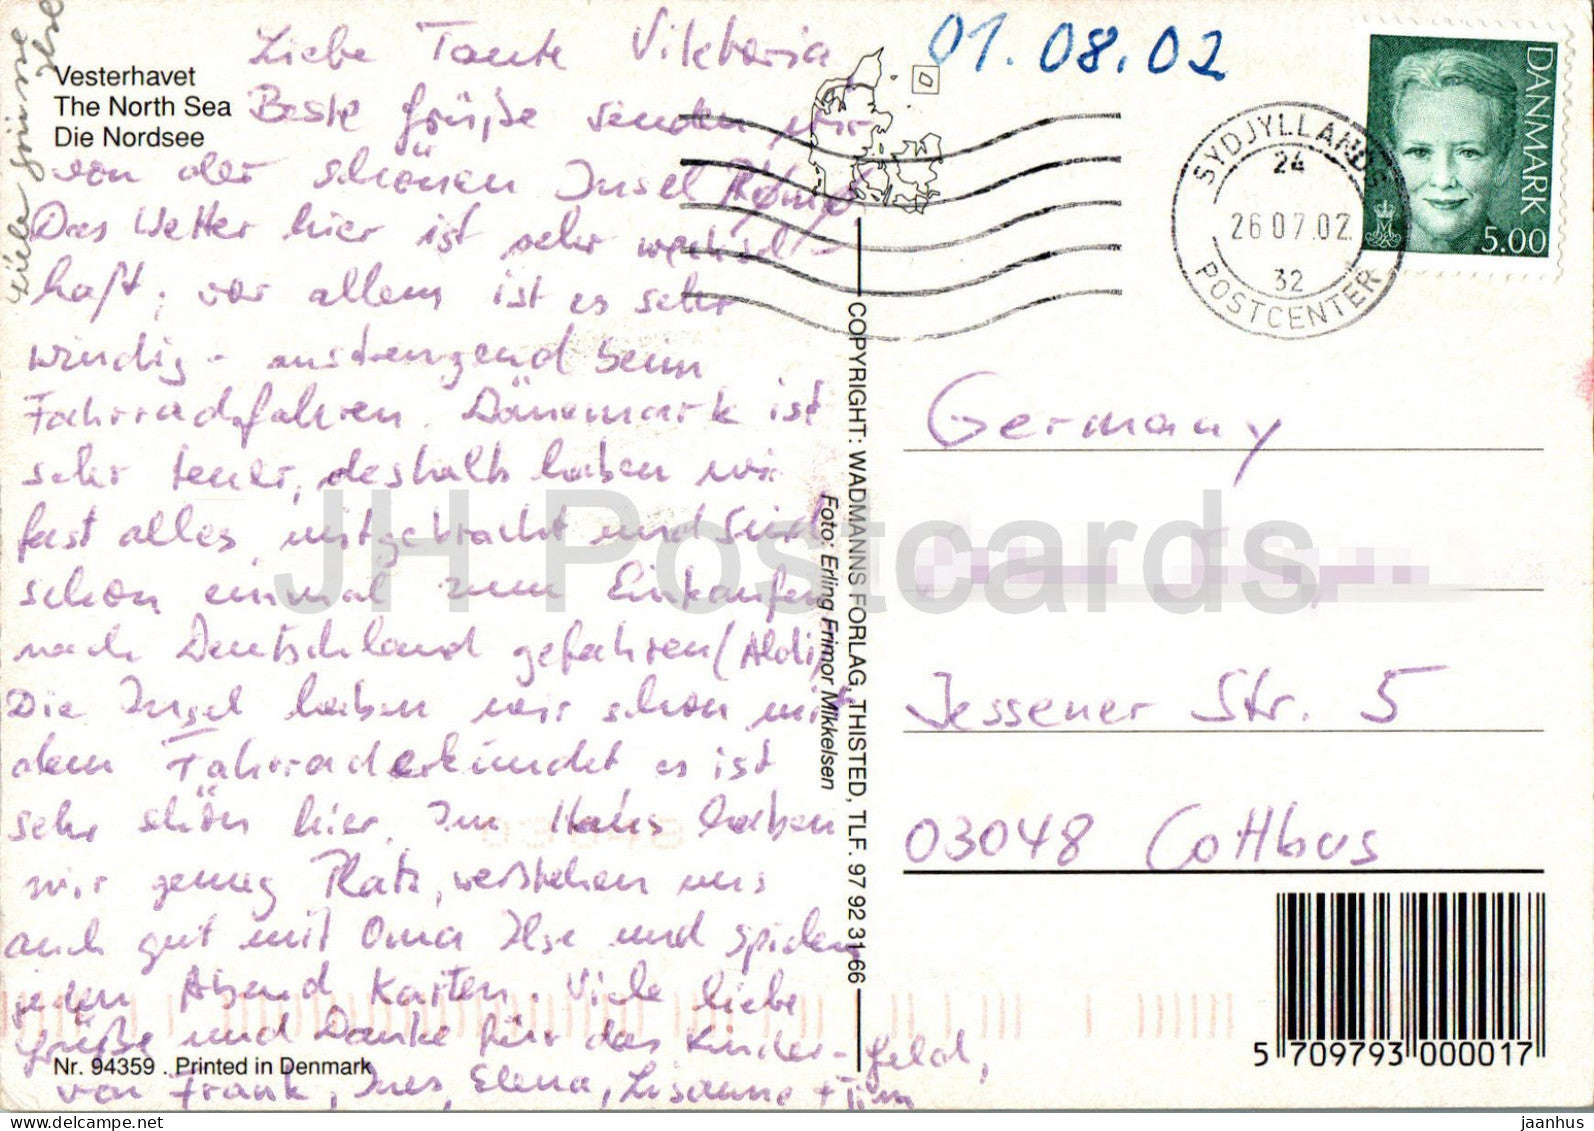 Vesterhavet
The North Sea
Die Nordsee
Liebe Tante Viktoria,
Beste Grüße senden wir
von der schönen Insel Rømø
Das Wetter hier ist sehr wechsel-
haft, vor allem ist es sehr
windig - anstrengend beim
Fahrradfahren. Dänemark ist
sehr teuer, deshalb haben wir
fast alles mitgebracht und sind
schon einmal zum Einkaufen
nach Deutschland gefahren (Aldi)
Die Insel haben wir schon mit
dem Fahrrad erkundet es ist
sehr schön hier. Im Haus haben
wir genug Platz, verstehen uns
auch gut mit Oma Ilse und spielen
jeden Abend Karten. Viele liebe
Grüße und Danke für das Kinder-geld,
von Frank, Ines, Elena, Lisanne + Tim
Viele Grüsse
Ilse
Nr. 94359 . Printed in Denmark
COPYRIGHT: WADMANNS FORLAG, THISTED, TLF. 97 92 31 66
Foto: Erling Frimor Mikkelsen
01.08.02
SYDJYLLANDS
24
26 07.02
32
POSTCENTER
DANMARK
5.00
Germany
Jessener Str. 5
03048 Cottbus
5 709793 000017
JH Postcards
jaanhus
www.delcampe.net